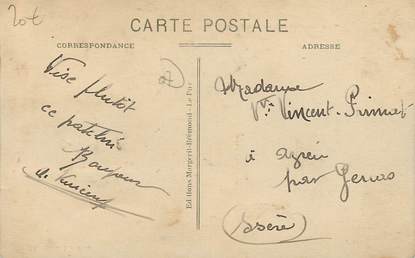 20€
CARTE POSTALE
CORRESPONDANCE
ADRESSE
Vise plutôt
ce patelin
Bonjour
Vincent
Editions Margerit-Brémond - Le Puy
Madame
Vve Vincent-Primat
à
par
Isère